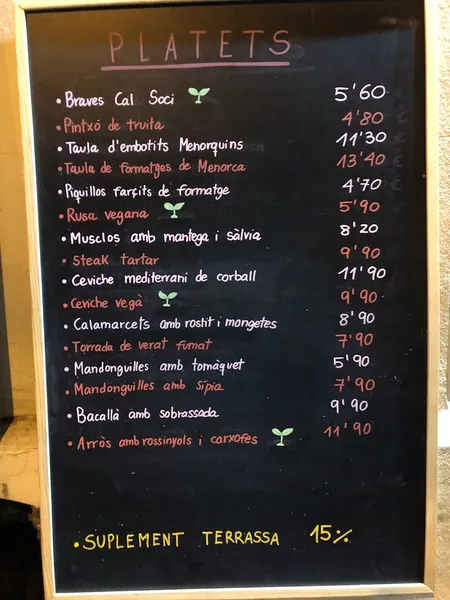 PLATETS
• Braves Cal Soci 5'60
• Pintxó de truita 4'80
• Taula d'embotits Menorquins 11'30
• Taula de formatges de Menorca 13'40
• Piquillos farçits de formatge 4'70
• Rusa vegana 5'90
• Musclos amb mantega i sàlvia 8'20
• Steak tartar 9'90
• Ceviche mediterrani de corball 11'90
• Ceviche vegà 9'90
• Calamarcets amb rostit i mongetes 8'90
• Torrada de verat fumat 7'90
• Mandonguilles amb tomàquet 5'90
• Mandonguilles amb sípia 7'90
• Bacallà amb sobrassada 9'90
• Arròs amb rossinyols i carxofes 11'90
• SUPLEMENT TERRASSA 15%